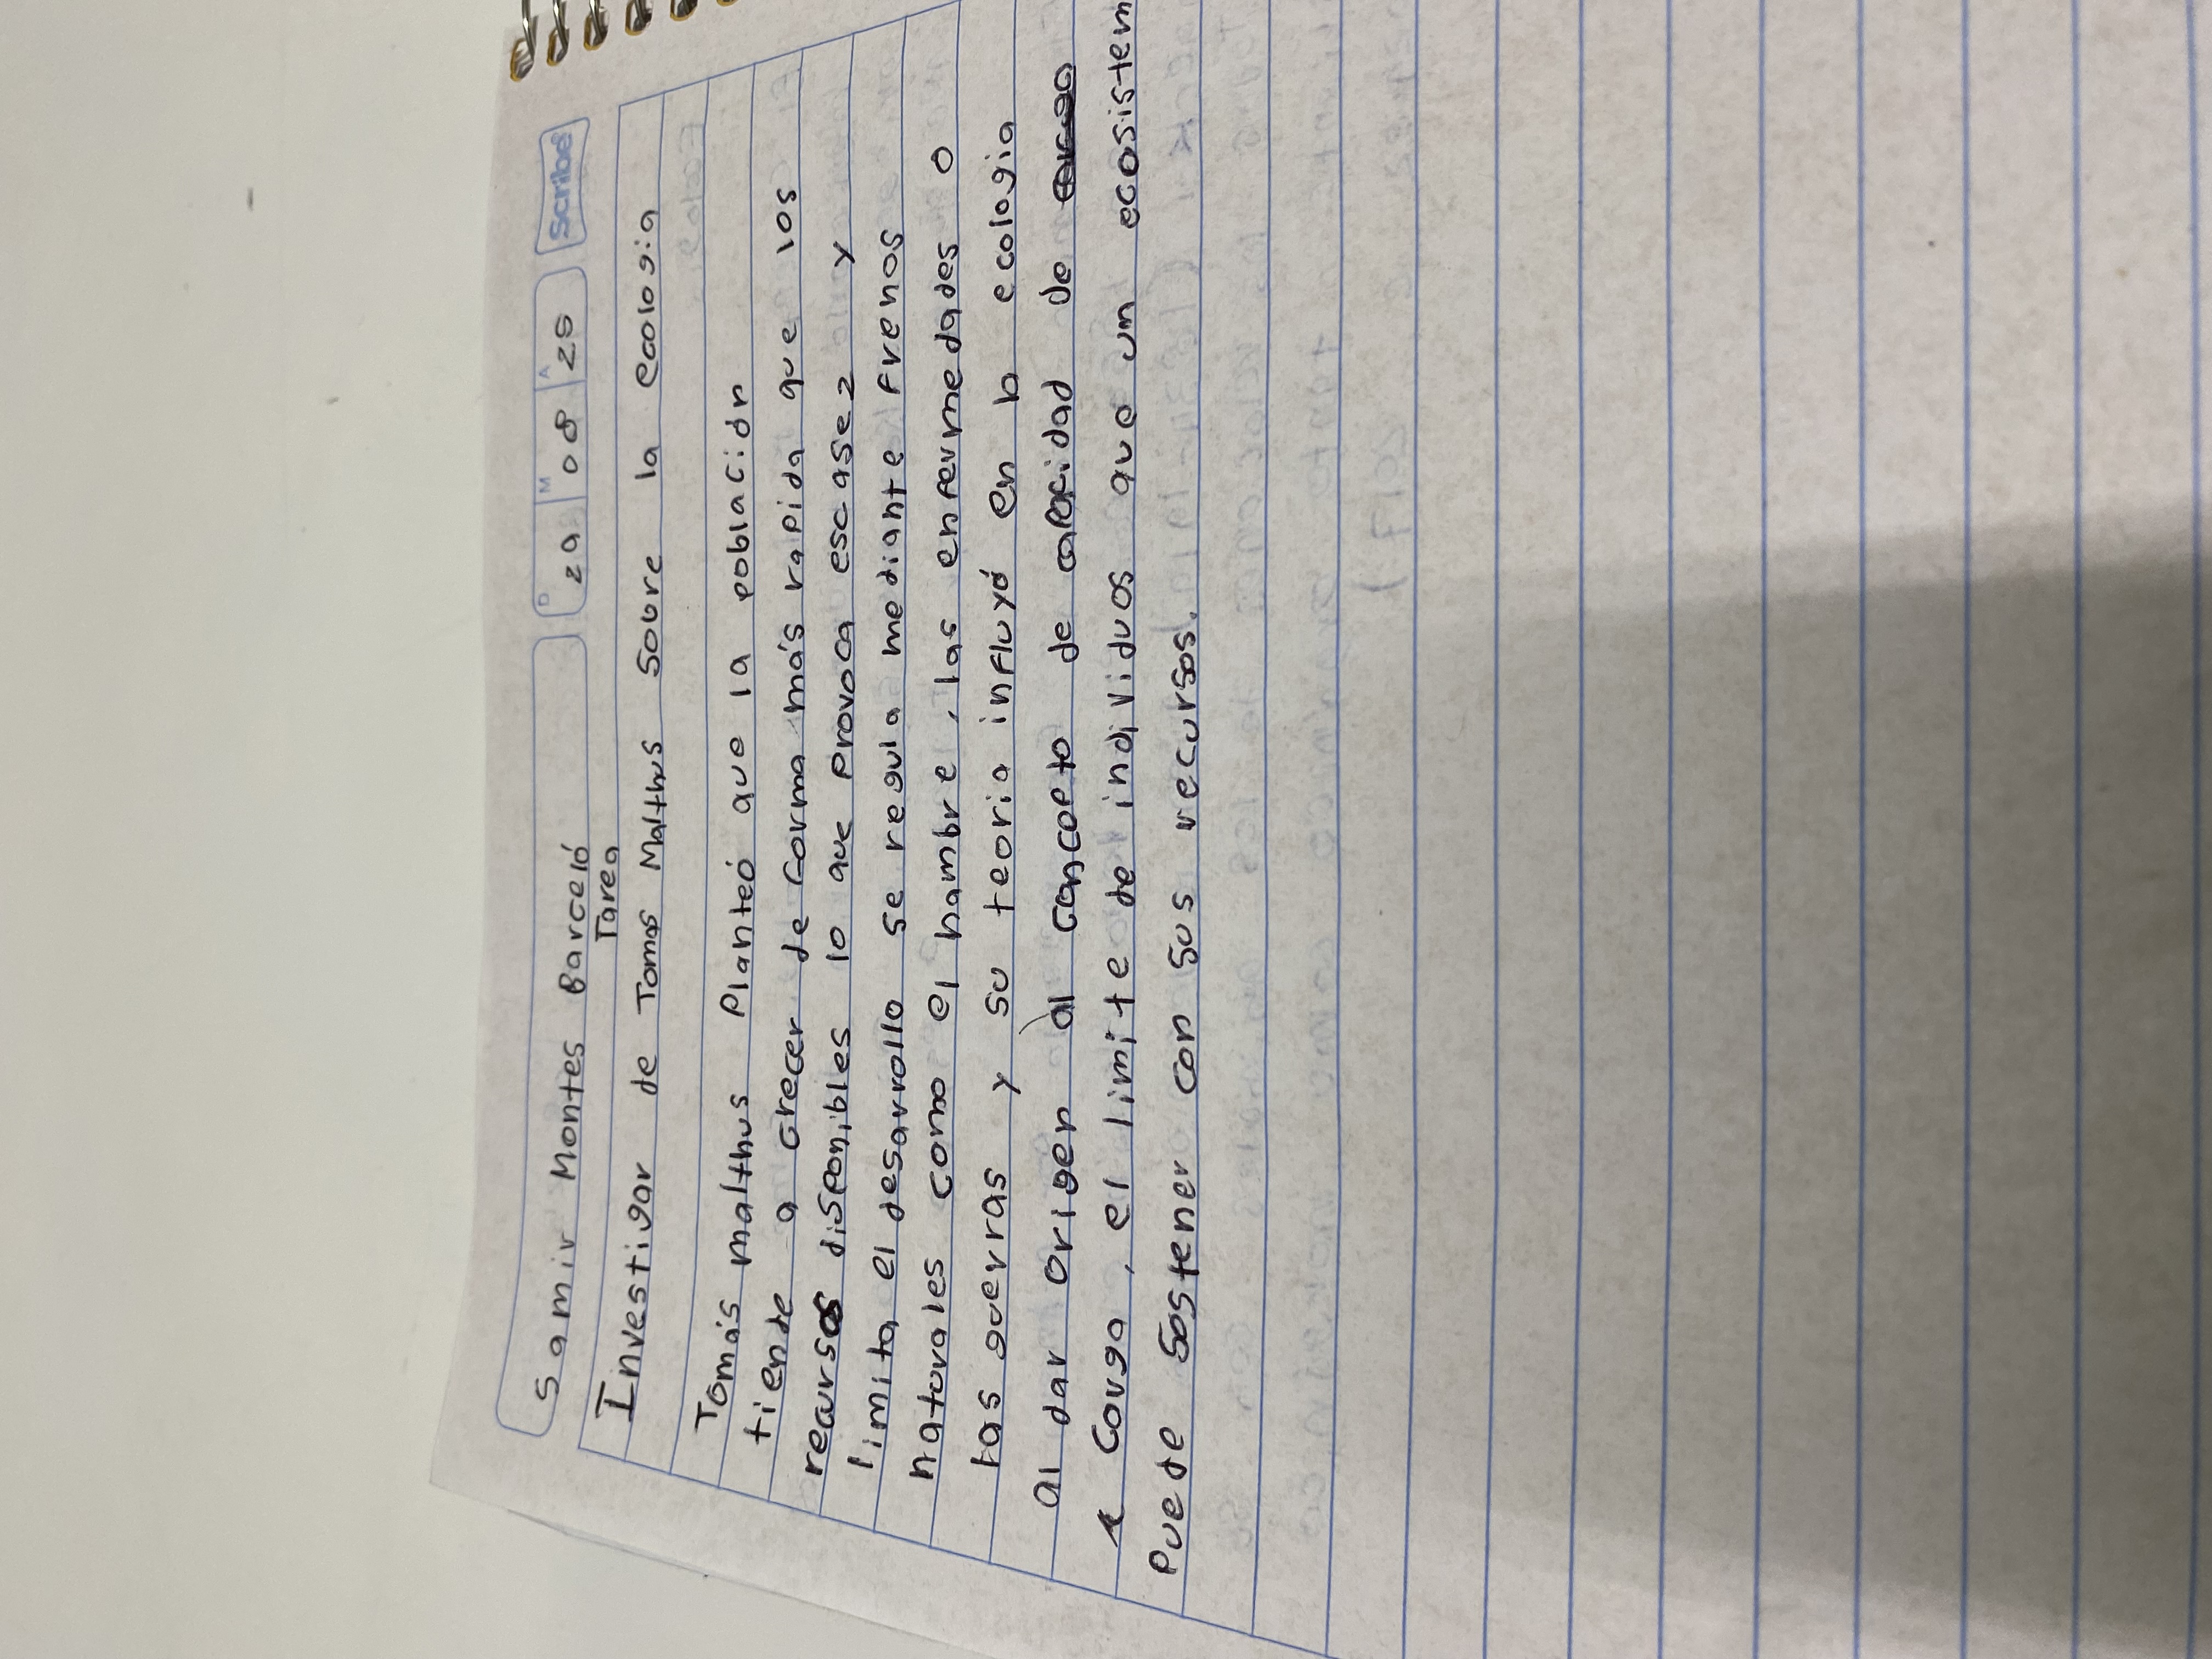 Samir Montes Barceló
D M A
29 08 25
Scribe
Tarea
Investigar de Tomas Malthus sobre la ecologia
Tomás malthus Planteó que la población
tiende a crecer de forma más rapida que los
recursos disponibles lo que provoca escasez y
limita el desarrollo se regula mediante frenos
naturales como el hambre, las enfermedades o
las guerras y su teoria influyó en la ecologia
al dar origen al concepto de capacidad de
carga, el limite de individuos que un ecosistem
Puede sostener con sus recursos.